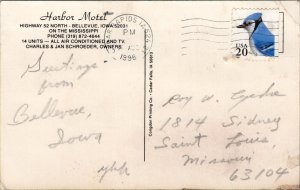 Harbor Motel
HIGHWAY 52 NORTH - BELLEVUE, IOWA 52031
ON THE MISSISSIPPI
PHONE (319) 872-4644
14 UNITS — ALL AIR CONDITIONED AND TV.
CHARLES & JAN SCHROEDER, OWNERS
RAPIDS
PM
1996
USA
20
Greetings
from
Bellevue,
Iowa
Congdon Printing Co. • Cedar Falls, IA 50613
Roy W.
1814 Sidney
Saint Louis,
Missouri
63104